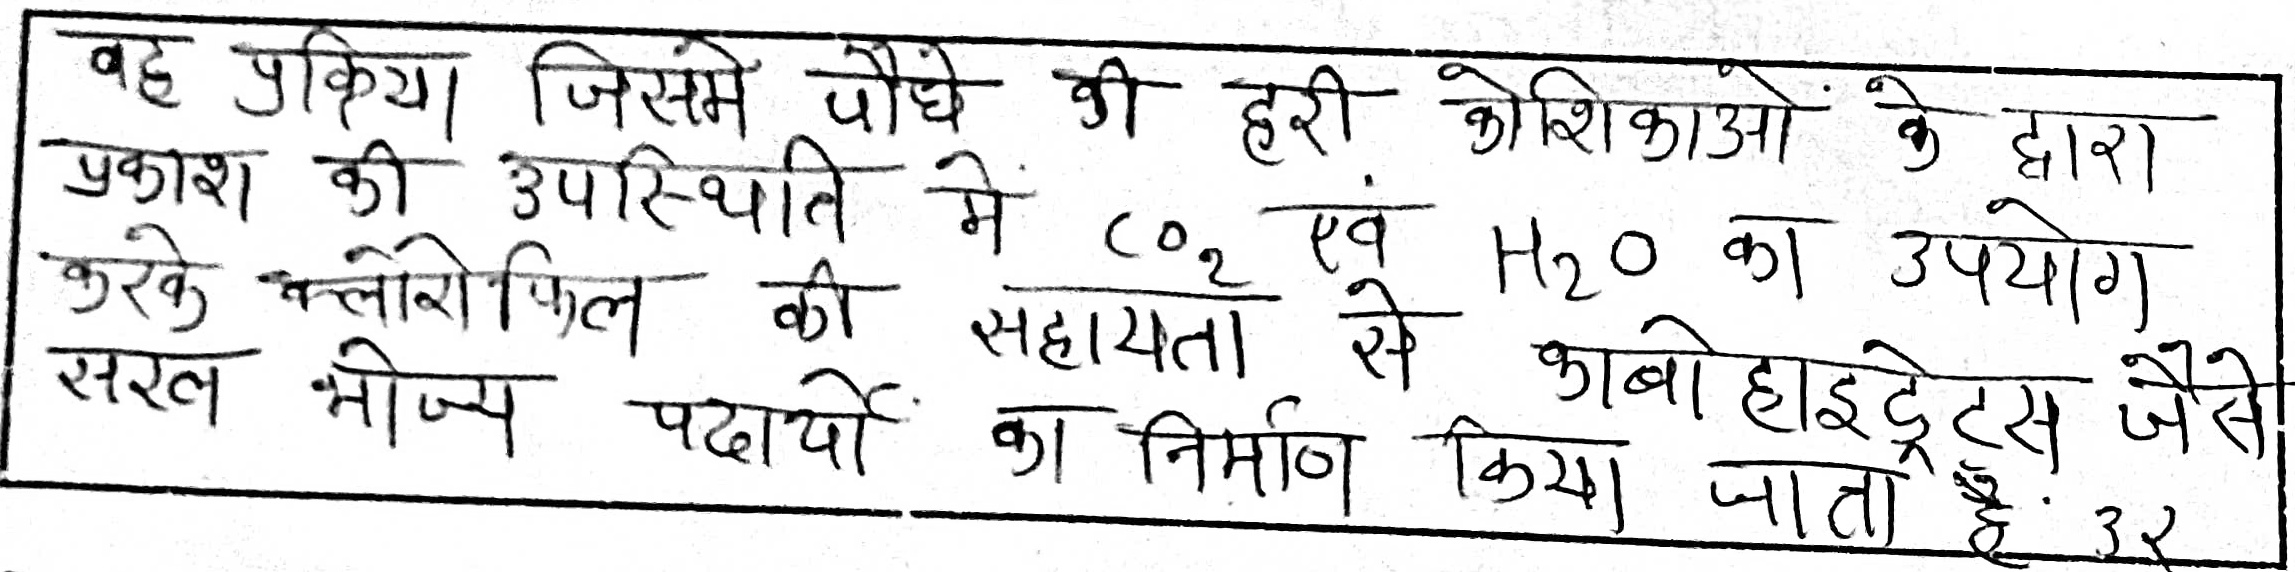 वह प्रक्रिया जिसमें पौधे की हरी कोशिकाओं के द्वारा
प्रकाश की उपस्थिति में CO2 एवं H2O का उपयोग
करके क्लोरोफिल की सहायता से काबोहाइट्रेटस जैसे
सरल भोज्य पदार्थो का निर्माण किया जाता हैं